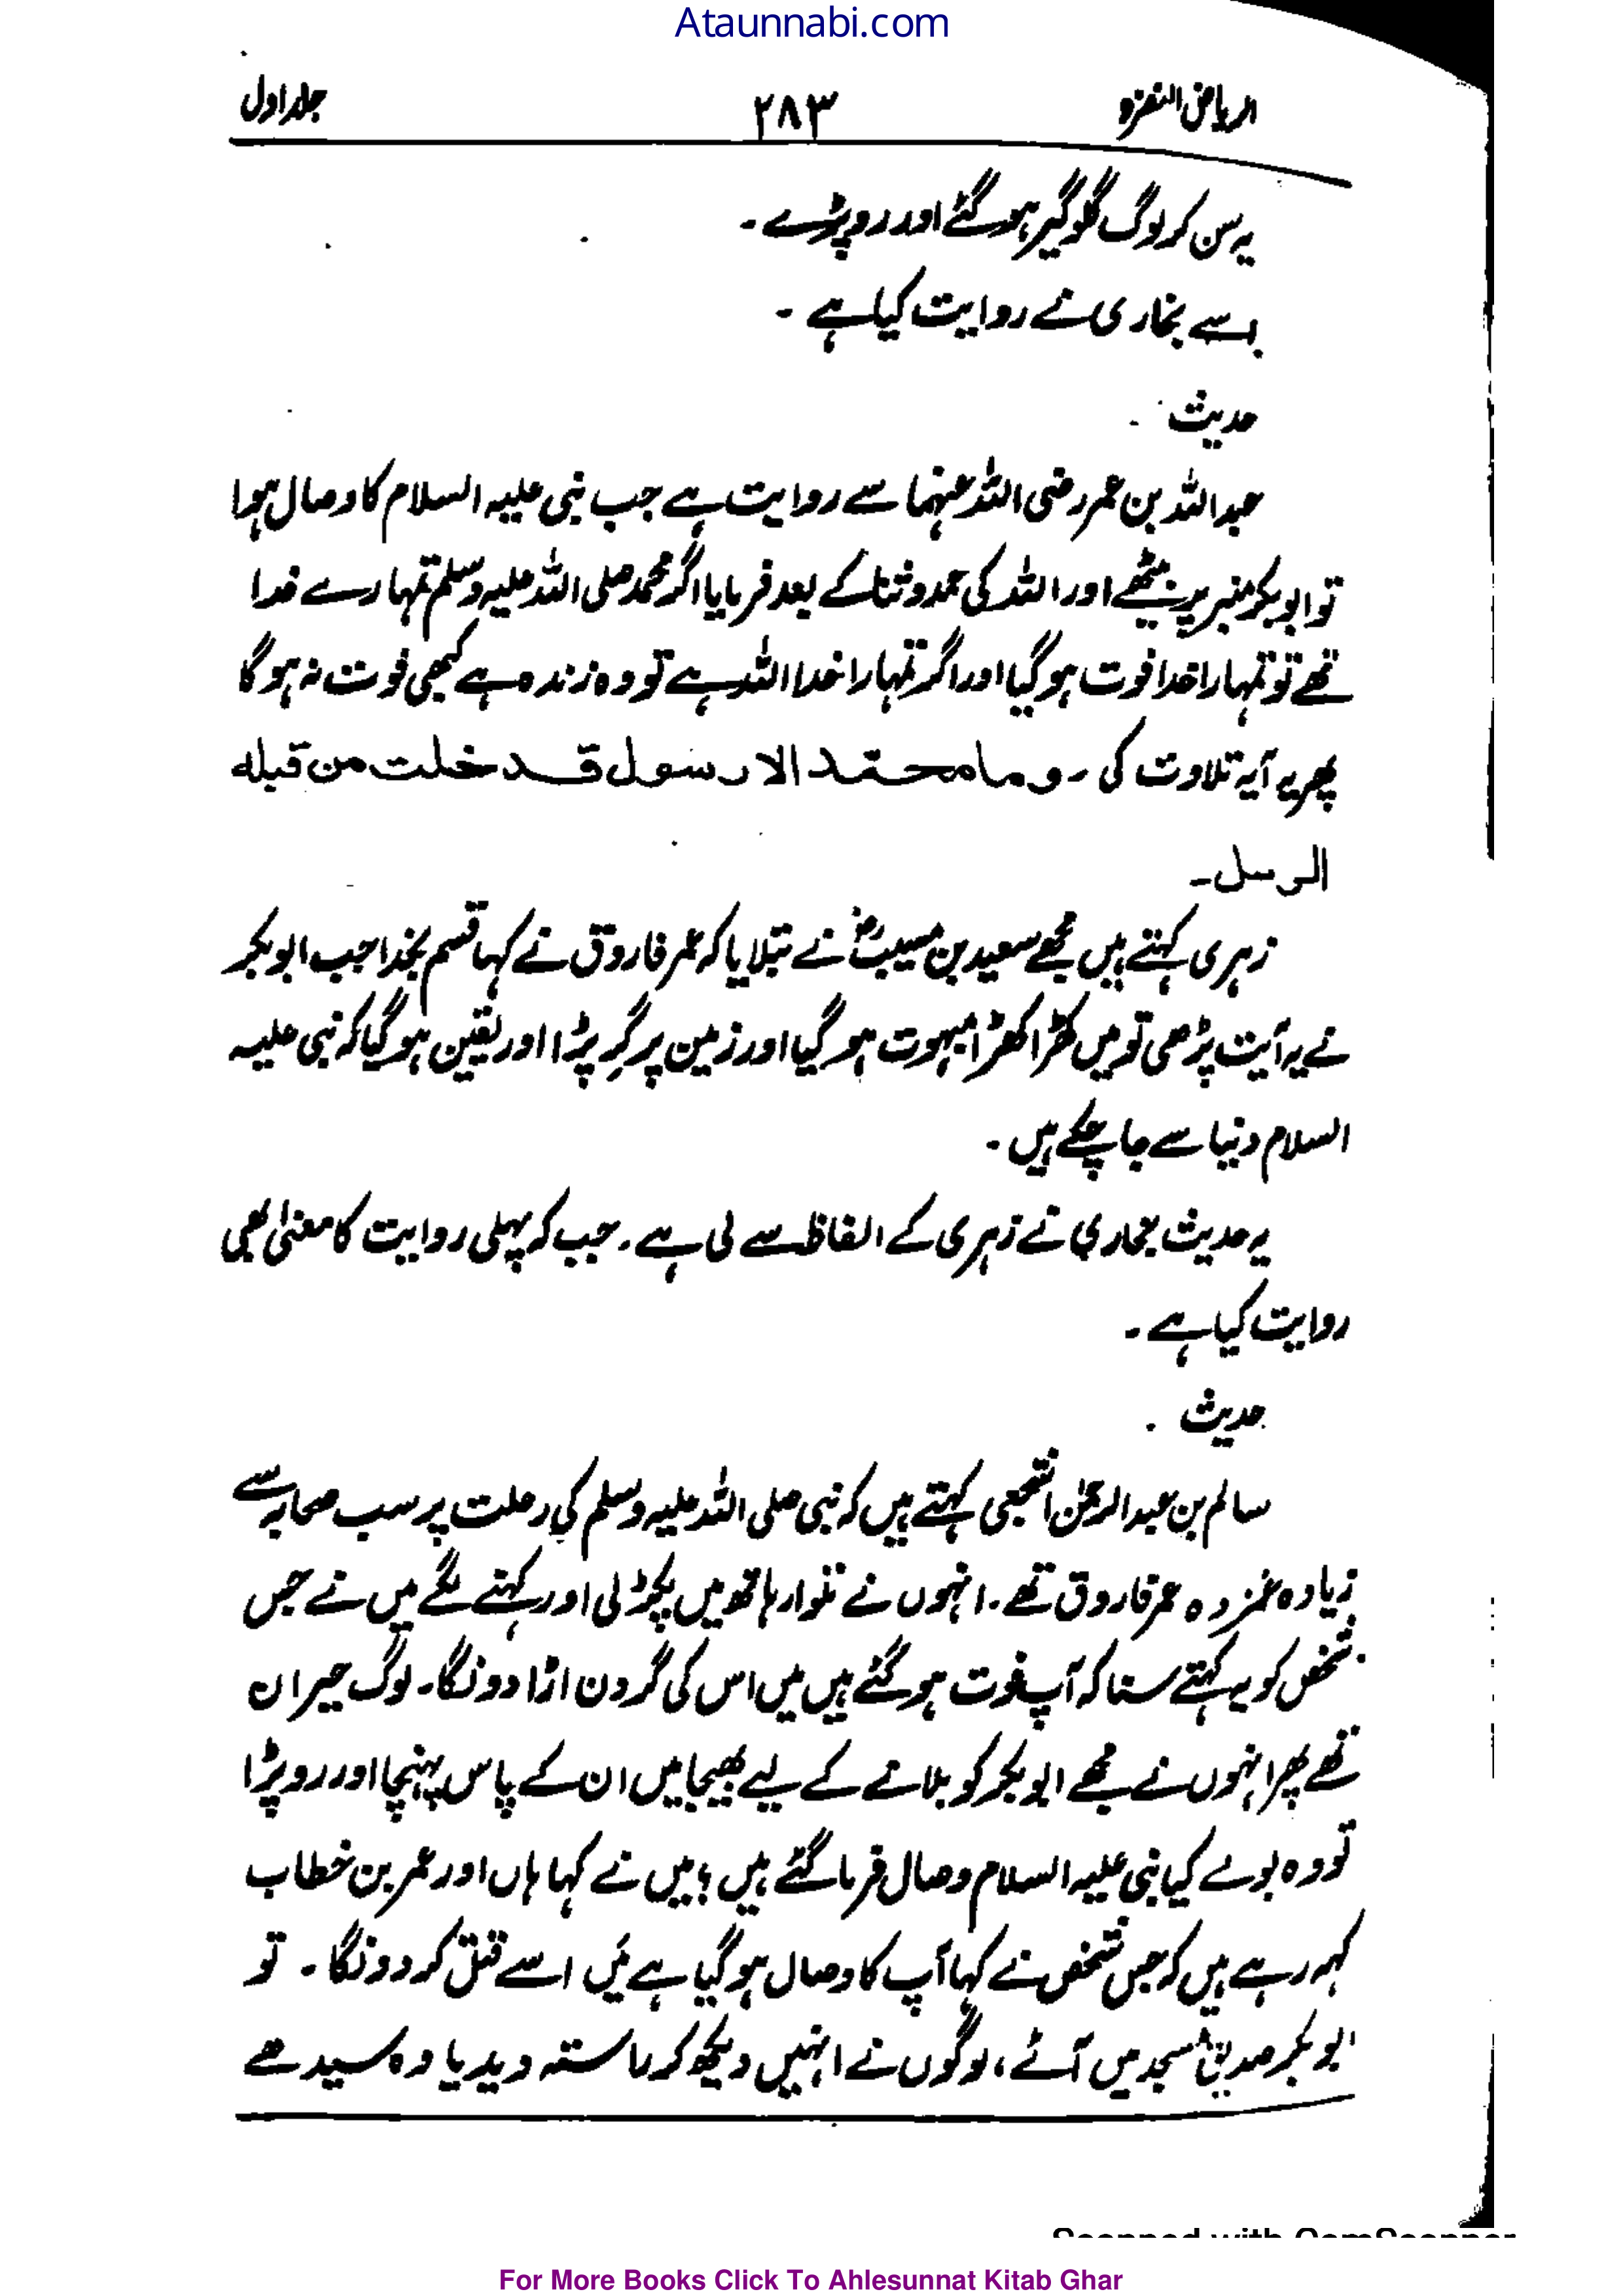 Ataunnabi.com
الریاض النضرہ ۲۸۳ جلد اول
یہ سن کر لوگ گلوگیر ہو گئے اور رو پڑے۔
اسے بخاری نے روایت کیا ہے۔
حدیث
عبداللہ بن عمر رضی اللہ عنہما سے روایت ہے جب نبی علیہ السلام کا وصال ہوا
تو ابوبکر منبر پر بیٹھے اور اللہ کی حمد و ثنا کے بعد فرمایا اگر محمد صلی اللہ علیہ وسلم تمہارے خدا
تھے تو تمہارا خدا فوت ہو گیا اور اگر تمہارا خدا اللہ ہے تو وہ زندہ ہے کبھی فوت نہ ہو گا
پھر یہ آیہ تلاوت کی ۔ وما محمّد الا رسول قد خلت من قبله
الرسل۔
زہری کہتے ہیں مجھے سعید بن مسیبؓ نے بتلایا کہ عمر فاروق نے کہا قسم بخدا جب ابوبکر
نے یہ آیت پڑھی تو میں کھڑا کھڑا مبہوت ہو گیا اور زمین پر گِر پڑا اور یقین ہو گیا کہ نبی علیہ
السلام دنیا سے جا چکے ہیں۔
یہ حدیث بخاری نے زہری کے الفاظ سے لی ہے۔ جب کہ پہلی روایت کا معنیٰ بھی
روایت کیا ہے۔
حدیث
سالم بن عبدالرحمٰن اشجعی کہتے ہیں کہ نبی صلی اللہ علیہ وسلم کی رحلت پر سب صحابہ سے
زیادہ غمزدہ عمر فاروق تھے۔ انہوں نے تلوار ہاتھ میں پکڑ لی اور کہنے لگے میں نے جس
شخص کو یہ کہتے سنا کہ آپ فوت ہو گئے ہیں میں اس کی گردن اڑا دونگا۔ لوگ حیران
تھے پھر انہوں نے مجھے ابوبکر کو بلانے کے لیے بھیجا میں ان کے پاس پہنچا اور رو پڑا
تو وہ بولے کیا نبی علیہ السلام وصال فرما گئے ہیں؟ میں نے کہا ہاں اور عمر بن خطاب
کہہ رہے ہیں کہ جس شخص نے کہا آپ کا وصال ہو گیا ہے میَں اسے قتل کر دونگا۔ تو
ابوبکر صدیقؓ مسجد میں آئے، لوگوں نے انہیں دیکھ کر راستہ دیدیا وہ سیدھے
Scanned with CamScanner
For More Books Click To Ahlesunnat Kitab Ghar